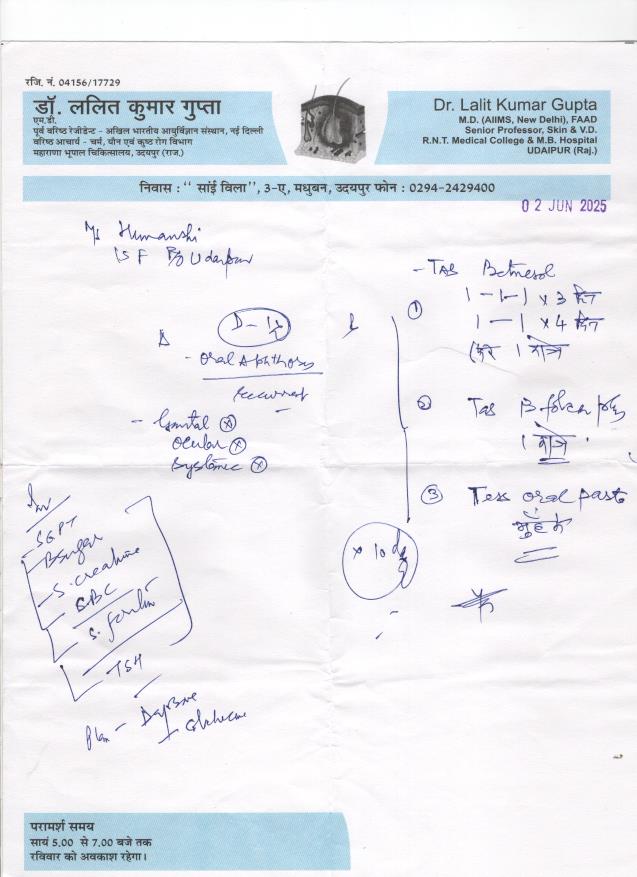 रजि. नं. 04156/17729
डॉ. ललित कुमार गुप्ता
एम.डी.
पूर्व वरिष्ठ रेजीडेन्ट - अखिल भारतीय आयुर्विज्ञान संस्थान, नई दिल्ली
वरिष्ठ आचार्य - चर्म, यौन एवं कुष्ठ रोग विभाग
महाराणा भूपाल चिकित्सालय, उदयपुर (राज.)
Dr. Lalit Kumar Gupta
M.D. (AIIMS, New Delhi), FAAD
Senior Professor, Skin & V.D.
R.N.T. Medical College & M.B. Hospital
UDAIPUR (Raj.)
निवास : " सांई विला", ३-ए, मधुबन, उदयपुर फोन : 0294-2429400
02 JUN 2025
Himanshi
15 F R/O Udaipur
Oral Aphthosis
recurrent
- Genital (x)
Ocular (x)
Systemic (x)
Inv
SGPT
B sugar
S. creatinine
CBC
S. ferritin
TSH
Plan - Dapsone
+ Colchicine
① - TAB Betnesol
1 - 1 - 1 x 3 दिन
1 - 1 x 4 दिन
1 रात्रि
② Tab B folcin plus
1 रात्रि
③ Tess oral paste
मुँह में
x 10 d
परामर्श समय
सायं 5.00 से 7.00 बजे तक
रविवार को अवकाश रहेगा।